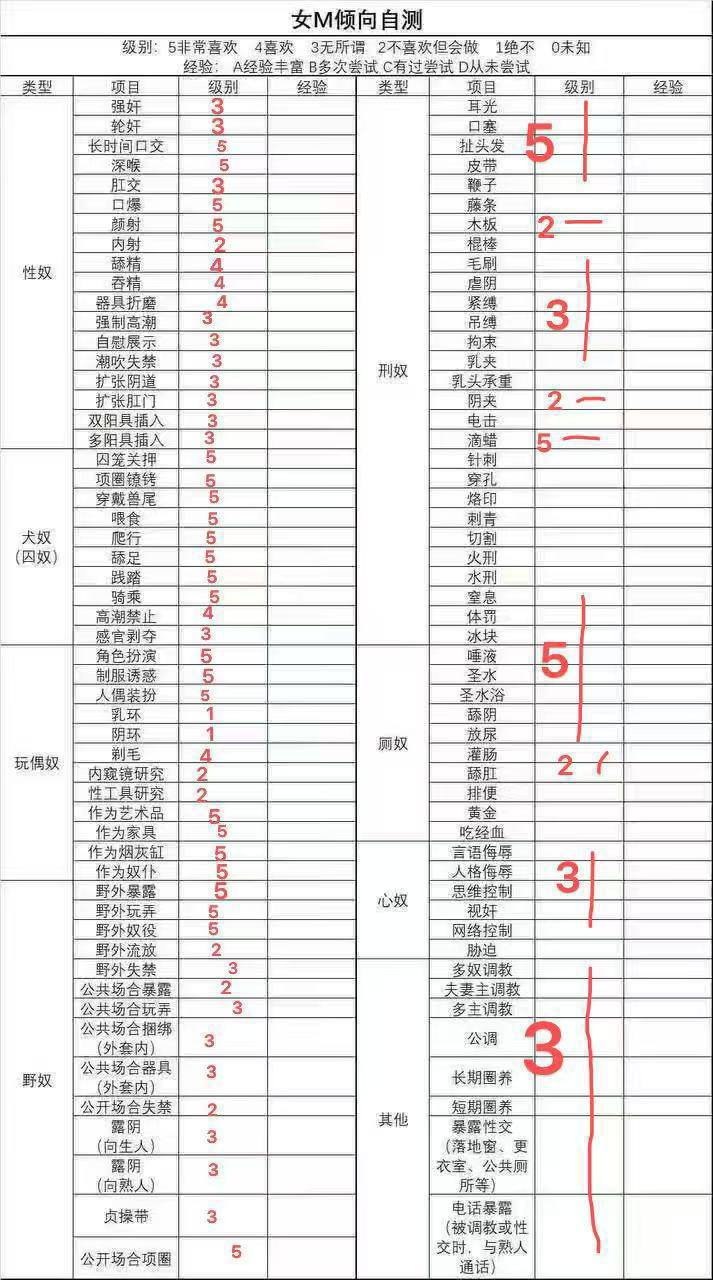 女M倾向自测
级别： 5非常喜欢 4喜欢 3无所谓 2不喜欢但会做 1绝不 0未知
经验： A经验丰富 B多次尝试 C有过尝试 D从未尝试
类型 项目 级别 经验 类型 项目 级别 经验
性奴
强奸 3
轮奸 3
长时间口交 5
深喉 5
肛交 3
口爆 5
颜射 5
内射 2
舔精 4
吞精 4
器具折磨 4
强制高潮 3
自慰展示 3
潮吹失禁 3
扩张阴道 3
扩张肛门 3
双阳具插入 3
多阳具插入 3
犬奴
（囚奴）
囚笼关押 5
项圈镣铐 5
穿戴兽尾 5
喂食 5
爬行 5
舔足 5
践踏 5
骑乘 5
高潮禁止 4
感官剥夺 3
玩偶奴
角色扮演 5
制服诱惑 5
人偶装扮 5
乳环 1
阴环 1
剃毛 4
内窥镜研究 2
性工具研究 2
作为艺术品 5
作为家具 5
作为烟灰缸 5
作为奴仆 5
野奴
野外暴露 5
野外玩弄 5
野外奴役 5
野外流放 2
野外失禁 3
公共场合暴露 2
公共场合玩弄 3
公共场合捆绑
（外套内） 3
公共场合器具
（外套内） 3
公开场合失禁 2
露阴
（向生人） 3
露阴
（向熟人） 3
贞操带 3
公开场合项圈 5
刑奴
耳光
口塞
扯头发 5
皮带
鞭子
藤条
木板 2
棍棒
毛刷
虐阴
紧缚
吊缚 3
拘束
乳夹
乳头承重
阴夹 2
电击
滴蜡 5
针刺
穿孔
烙印
刺青
切割
火刑
水刑
窒息
体罚
冰块
厕奴
唾液 5
圣水
圣水浴
舔阴
放尿
灌肠 2
舔肛
排便
黄金
吃经血
心奴
言语侮辱
人格侮辱 3
思维控制
视奸
网络控制
胁迫
其他
多奴调教
夫妻主调教
多主调教
公调 3
长期圈养
短期圈养
暴露性交
（落地窗、更
衣室、公共厕
所等）
电话暴露
（被调教或性
交时，与熟人
通话）